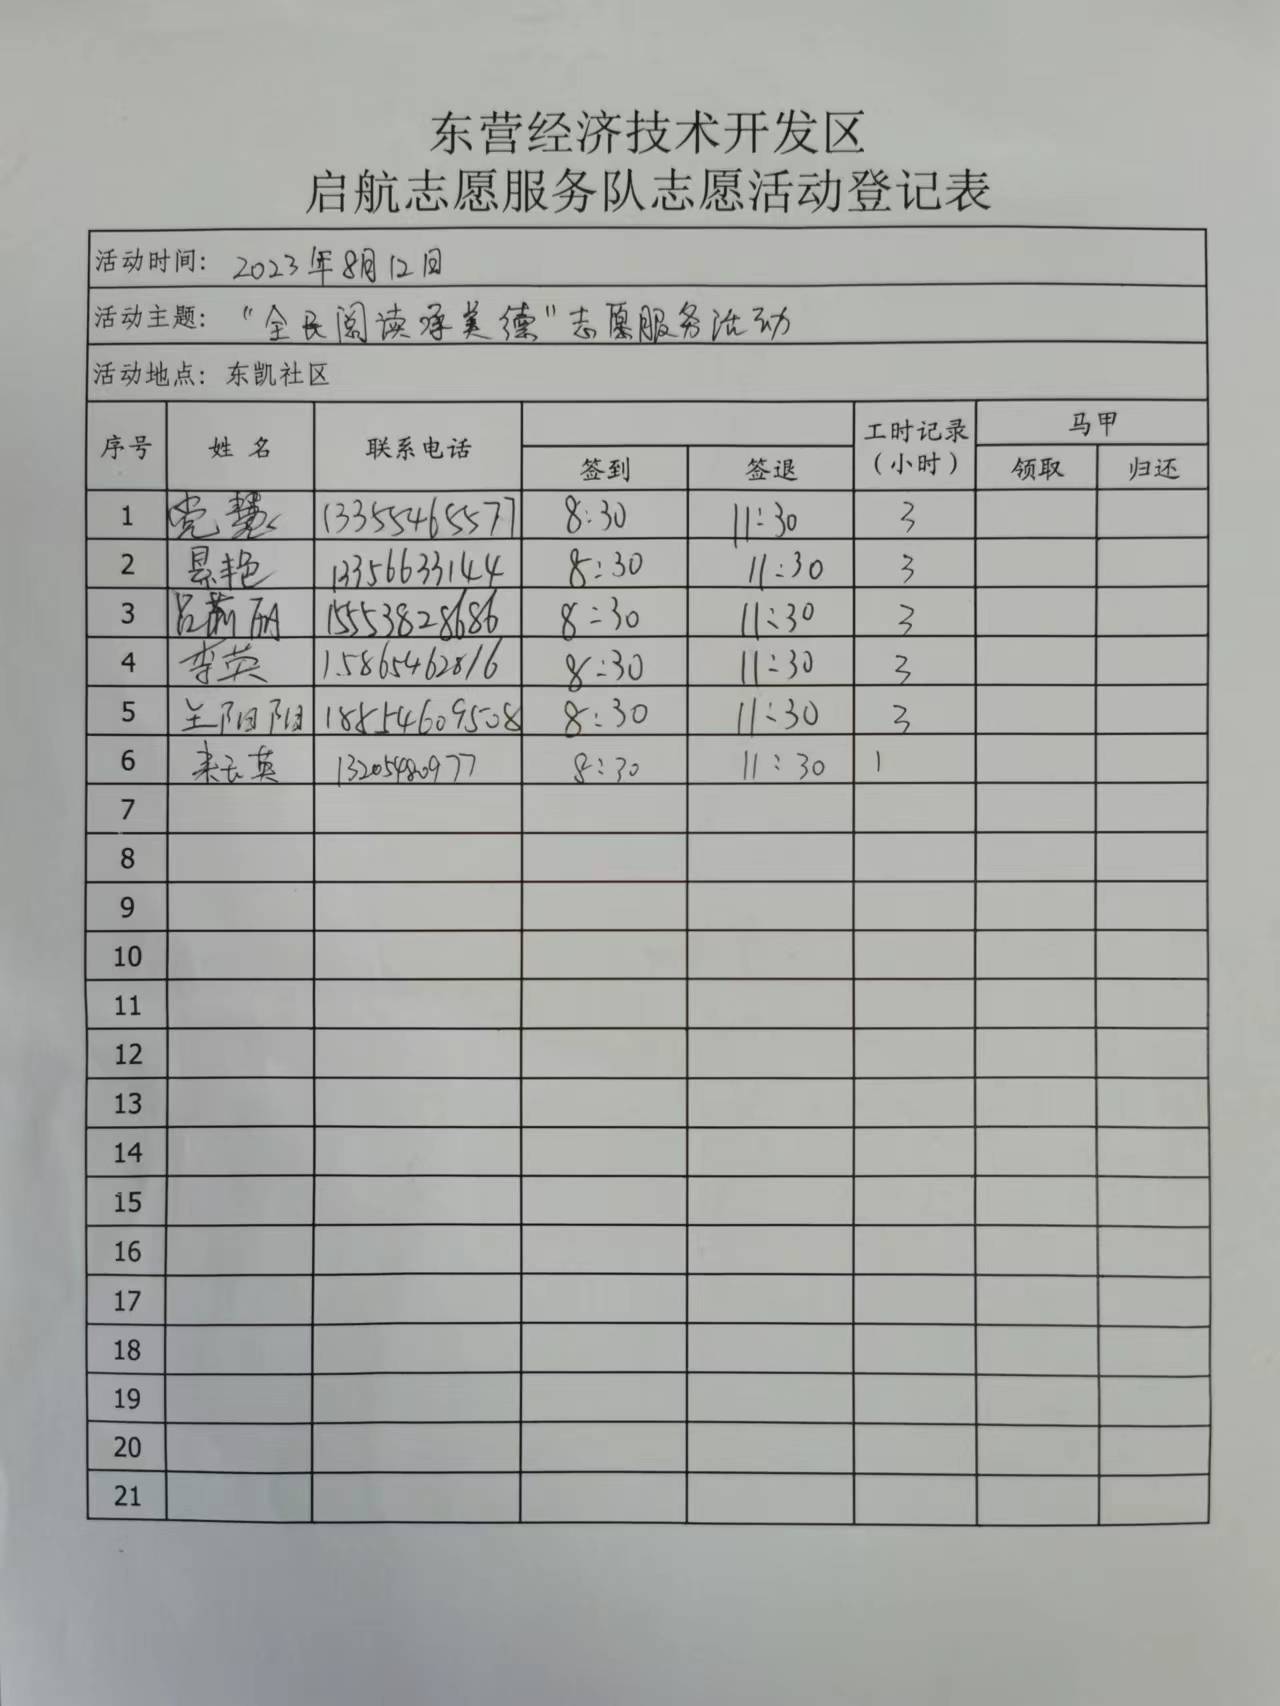 东营经济技术开发区
启航志愿服务队志愿活动登记表
活动时间: 2023年8月12日
活动主题: "全民阅读承美德"志愿服务活动
活动地点: 东凯社区
序号 姓名 联系电话 工时记录(小时) 马甲
签到 签退 领取 归还
1 党慧 13355465577 8:30 11:30 3
2 景艳 13356633144 8:30 11:30 3
3 吕莉丽 15553828686 8:30 11:30 3
4 李英 15865462816 8:30 11:30 3
5 王阳阳 18854609508 8:30 11:30 3
6 英 13205480977 8:30 11:30 1
7
8
9
10
11
12
13
14
15
16
17
18
19
20
21